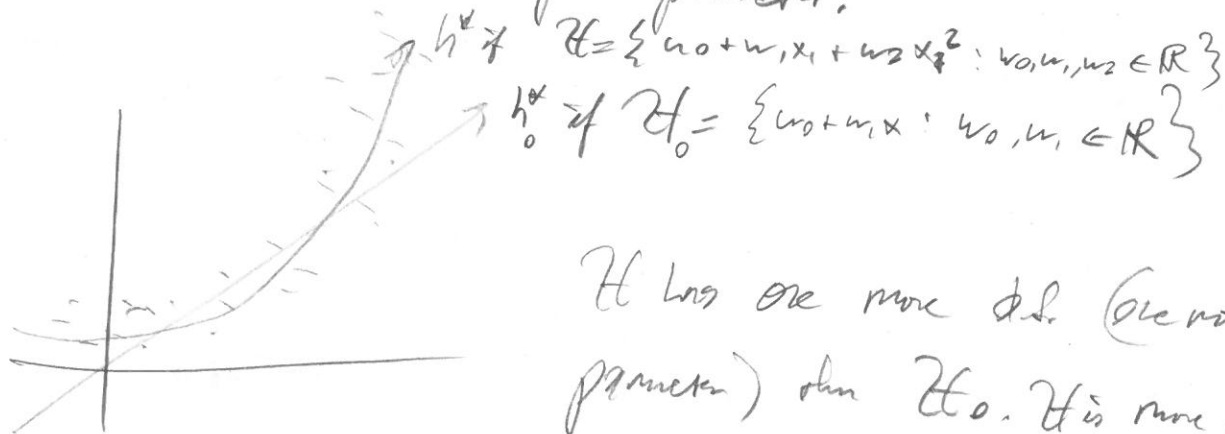 h* if ℋ = { w₀ + w₁x₁ + w₂x₁² : w₀, w₁, w₂ ∈ ℝ }
h₀* if ℋ₀ = { w₀ + w₁x : w₀, w₁ ∈ ℝ }
ℋ has one more d.f. (one
parameter) than ℋ₀. ℋ is more